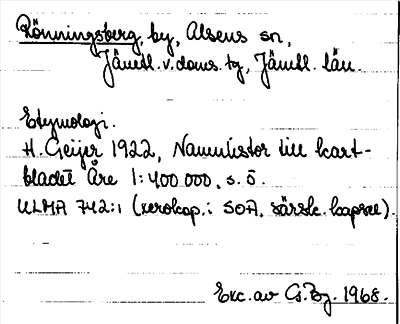 Rönningsberg, by, Alsens sn,
Jämtl. v. doms. tg, Jämtl. län.
Etymologi.
H. Geijer 1922, Namnlistor till kart-
bladet Åre 1:400.000, s. 5.
ULMA 742:1 (xerokop. i SOA, särsk. kapsel).
Exc. av G. Bg. 1968.